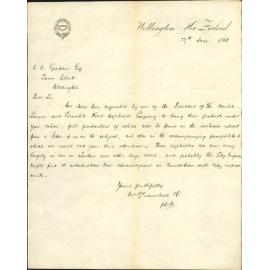 Wellington, New Zealand
27th June 1888
Esq
Town Clerk
Wellington
Dear Sir
We have been requested by one of the Directors of the United
Limmer and Vorwohle Rock Asphalte Company to bring their products under
your notice, full particulars of which will be found in the enclosed extract
from a letter to us on the subject, and also in the accompanying pamphlets to
which we would ask your kind attention. These asphaltes are now very
largely in use in London and other large cities, and probably the City Engineer
might find its introduction here advantageous in connection with City improve
ments.
Yours faithfully